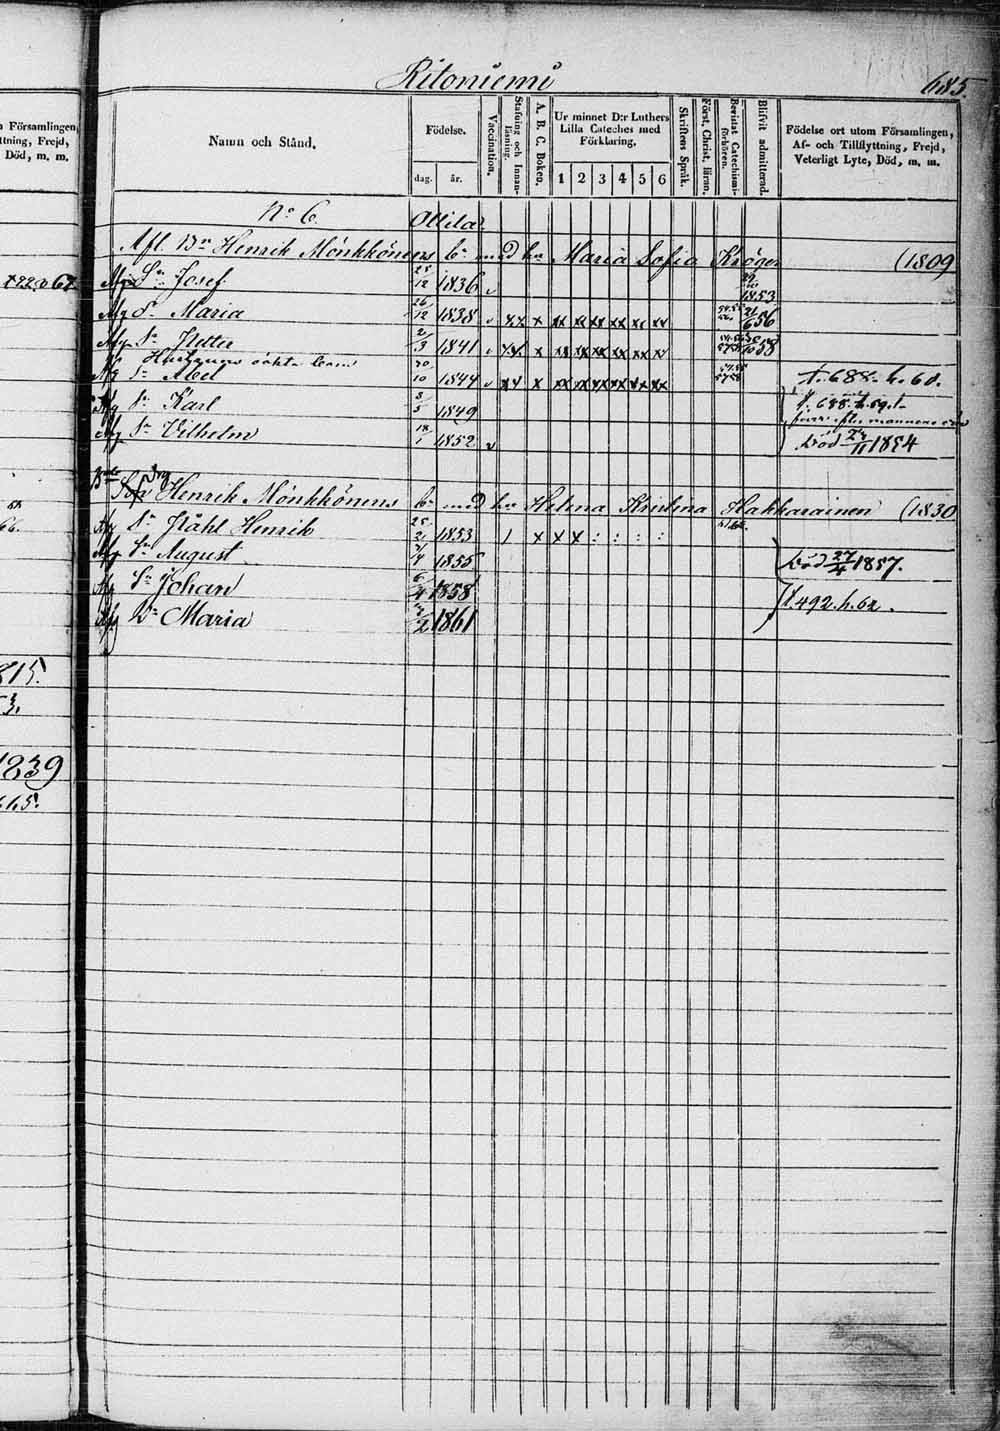 Ritoniemi
685.
Församlingen,
ttning, Frejd,
Död, m. m.
Namn och Stånd.
Födelse.
dag.
år.
Vaccination.
Stafning och Innan-läsning.
A. B. C. Boken.
Ur minnet D:r Luthers Lilla Cateches med Förklaring.
1 2 3 4 5 6
Skriftens Språk.
Först. Christ. läran.
Bevistat Catechismi-förhören.
Blifvit admitterad.
Födelse ort utom Församlingen,
Af- och Tillflyttning, Frejd,
Veterligt Lyte, Död, m. m.
No 6. Ollila
Afl. Bn Henrik Mönkkönens bn med hu Maria Sofia Kröger (1809
Sn Josef 25/12 1836 1853
Dr Maria 26/12 1838 x x x xx xx xx xx xx xx 21/6 56
Sn Petter 2/3 1841 x x x xx xx xx xx xx xx 58
Hustruns oäkta barn
Sn Abel 30/10 1844 x x x xx xx xx xx xx xx f. 688. h. 60.
Sn Karl 8/5 1849 f. 688. h. 59.
Sn Vilhelm 18/1 1852 död 1854
Henrik Mönkkönens bn med hu Helena Kristina Hakkarainen (1830
Sn Ståhl Henrik 25/2 1853 x x x : : : :
Sn August 1855 död 27/4 1857.
Sn Johan 6/4 1858
f. 492. h. 62.
Dr Maria 1861
815.
3.
1839
665.